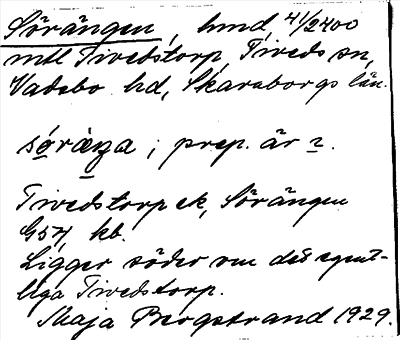 Sörängen, hmd, 41/2400
mtl Tivedstorp, Tiveds sn,
Vadsbo hd, Skaraborgs län.
söräŋa; prep. är 2.
Tivedstorp ek, Sörängen
G57, kb.
Ligger söder om det egent-
liga Tivedstorp.
Maja Bergstrand 1929.